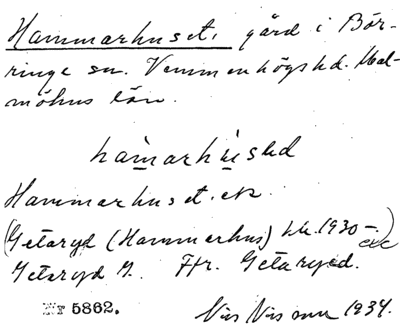 Hammarhuset, gård i Bör-
ringe sn. Vemmenhögs hd. Mal-
möhus län.
hamarhusəd
Hammarhuset. ek
(Getaryd (Hammarhus) hk. 1930 –
Getaryd Fr. Getaryed.
Nr 5862. 1934.